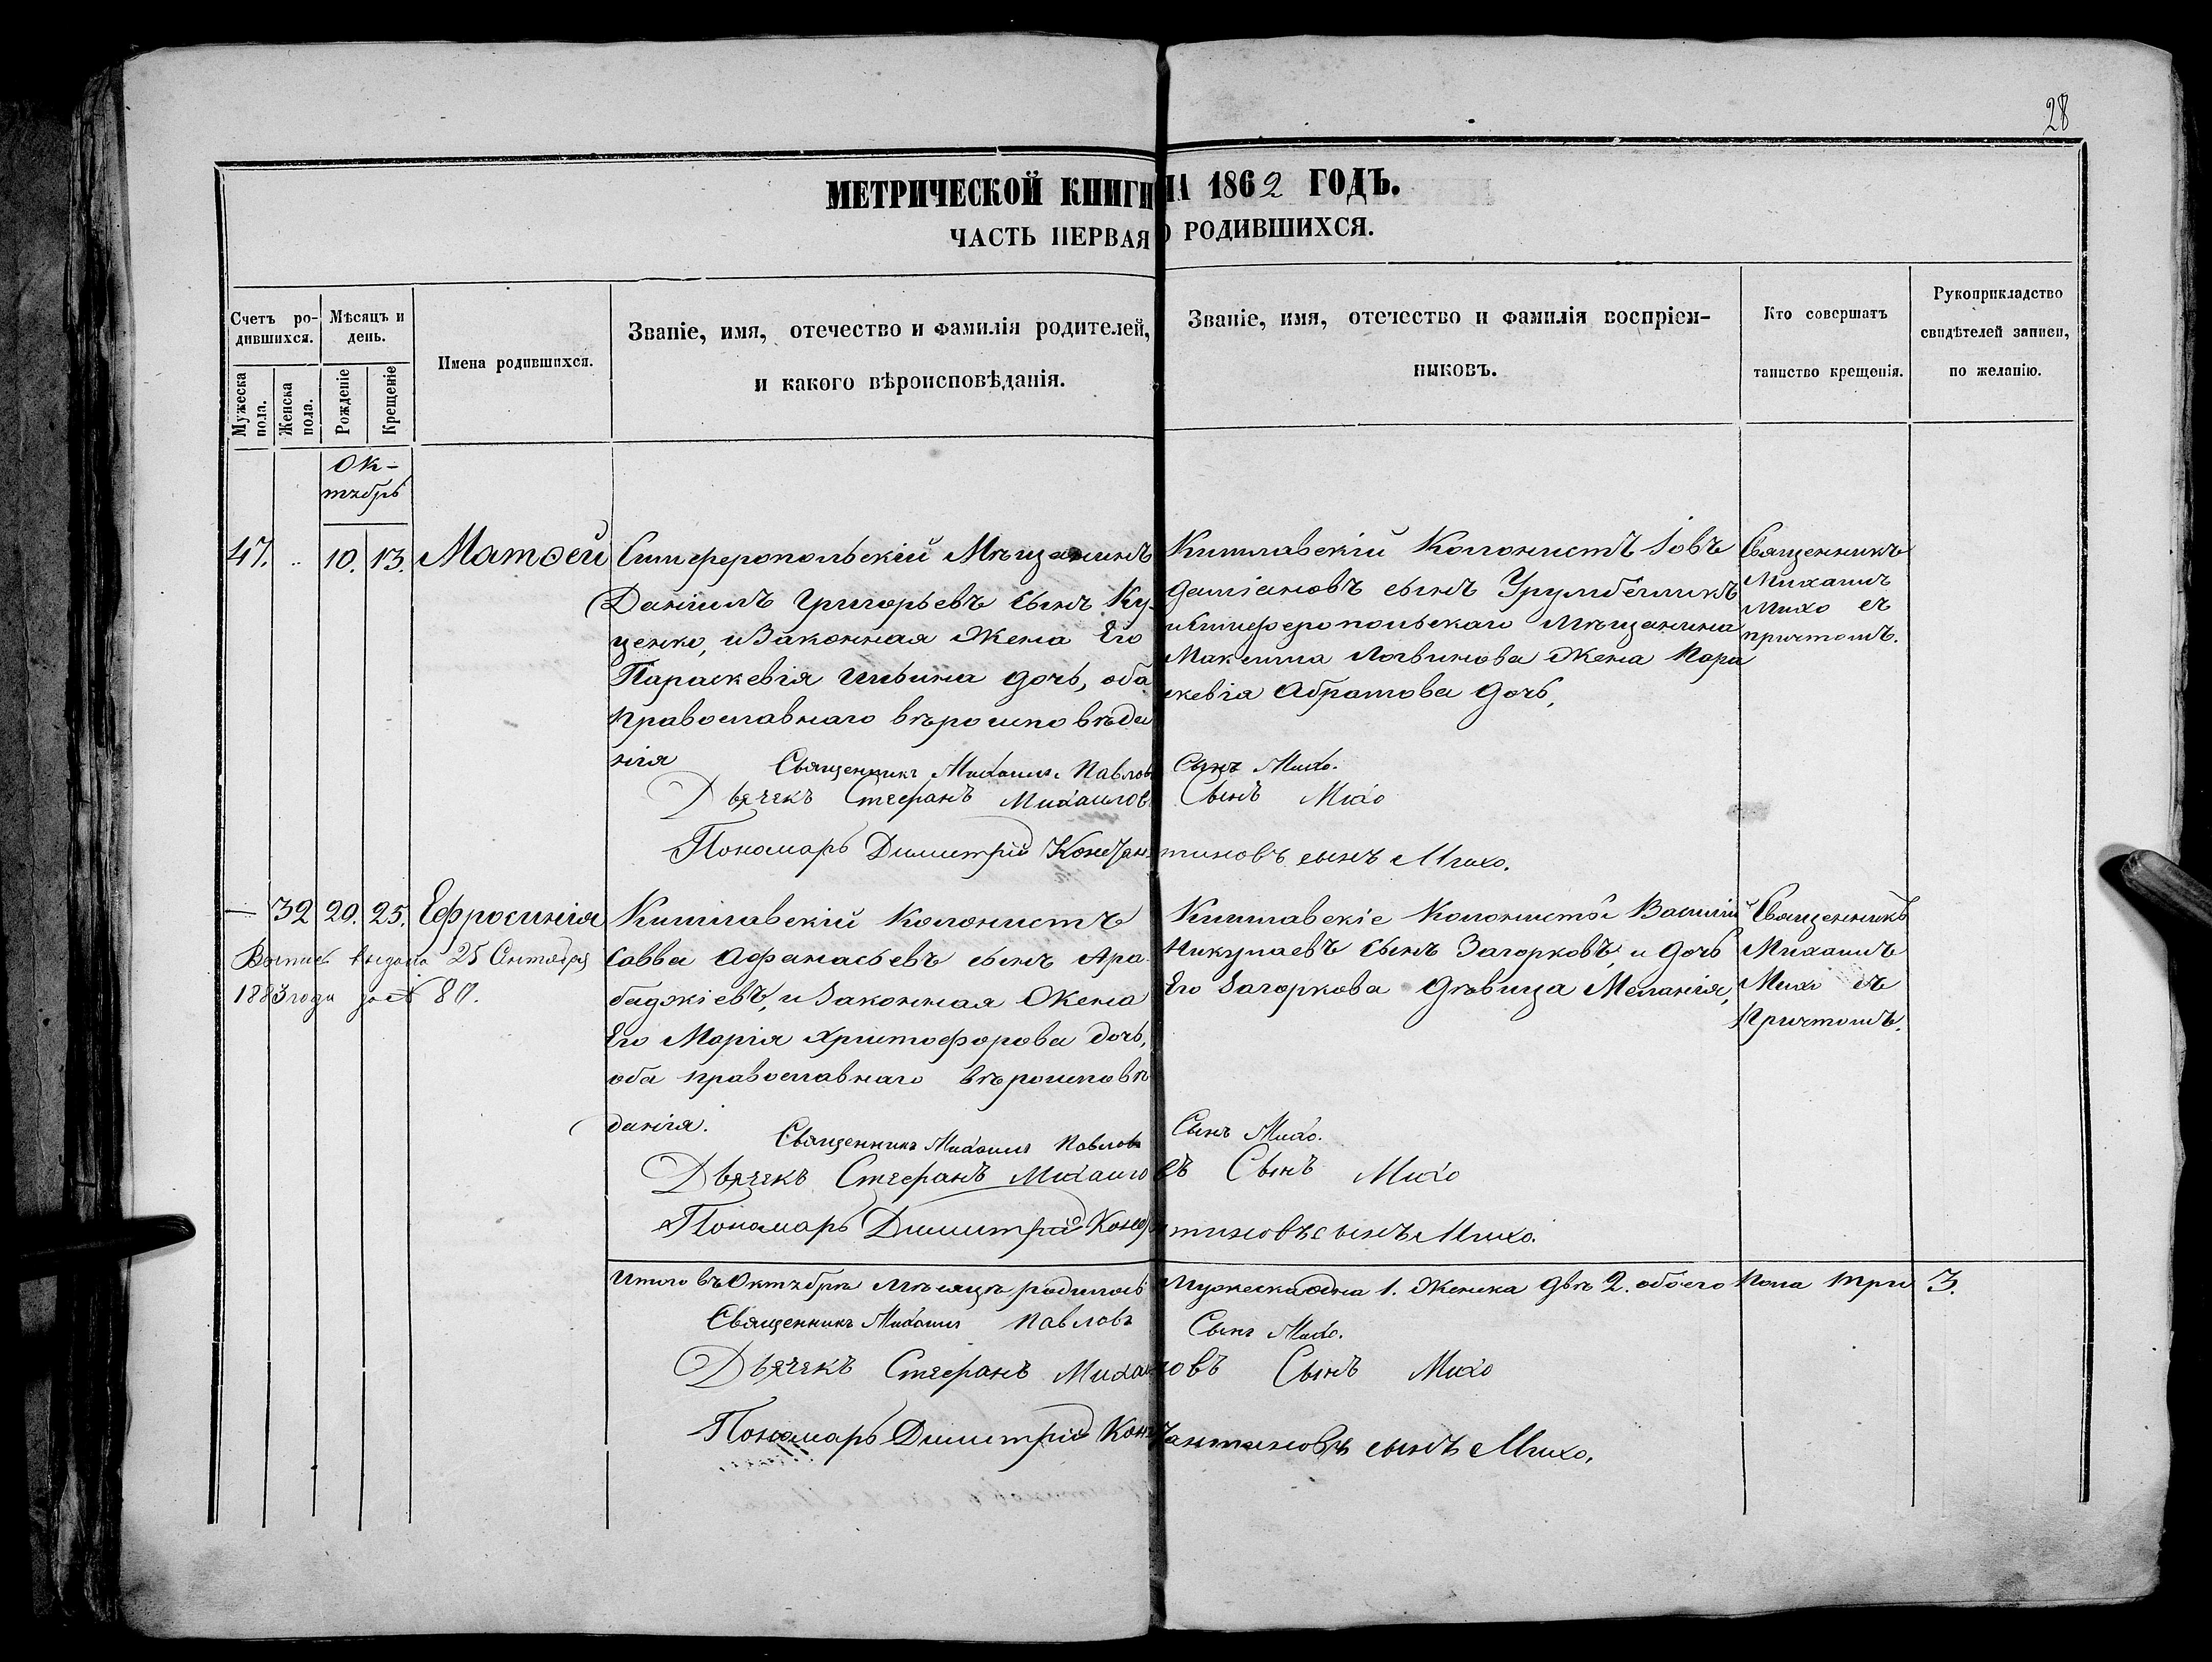 28
МЕТРИЧЕСКОЙ КНИГИ НА 1862 ГОДЪ.
ЧАСТЬ ПЕРВАЯ О РОДИВШИХСЯ.
Счетъ ро-
дившихся.
Мужеска пола.
Женска пола.
Мѣсяцъ и
день.
Рожденіе
Крещеніе
Имена родившихся.
Званіе, имя, отечество и фамилія родителей,
и какого вѣроисповѣданія.
Званіе, имя, отечество и фамилія воспріем-
никовъ.
Кто совершатъ
таинство крещенія.
Рукоприкладство
свидѣтелей записи,
по желанію.
Ок-
тябрь
47. 10. 13. Матѳей
Симферопольскій Мѣщанинъ
Даніилъ Григорьевъ сынъ Ку-
ценко, и Законная Жена Его
Параскевія Ильина дочь, оба
православнаго вѣроисповѣда
нія
Кишлавскій Колонистъ Іовъ
Даміановъ сынъ
и Симферопольскаго Мѣщанина
Максима Логвинова Жена Пара
скевія Абрамова дочь,
Священникъ
Михаилъ
Михо съ
причтомъ.
Священникъ Михаилъ Павловъ Сынъ Михо.
Дьячекъ Стефанъ Михаиловъ Сынъ Михо
Пономарь Димитрій Константиновъ сынъ Михо.
— 32 20. 25. Ефросинія
Выпись выдана 25 Сентября
1883 года за № 80.
Кишлавскій Колонистъ
Савва Афанасьевъ сынъ Ара
баджіевъ, и Законная Жена
Его Марія Христофорова дочь,
оба православнаго вѣроисповѣ
данія.
Кишлавскіе Колонисты Василій
Никулаевъ сынъ Загорковъ, и дочь
Его Загоркова дѣвица Меланія,
Священникъ
Михаилъ
Михо съ
Причтомъ.
Священникъ Михаилъ Павловъ Сынъ Михо.
Дьячекъ Стефанъ Михаиловъ Сынъ Михо
Пономарь Димитрій Константиновъ сынъ Михо.
Итого въ Октябрѣ Мѣсяцѣ родилось Мужеска одна 1. Женска двѣ 2. обоего пола три 3.
Священникъ Михаилъ Павловъ Сынъ Михо.
Дьячекъ Стефанъ Михаиловъ Сынъ Михо
Пономарь Димитрій Константиновъ сынъ Михо.